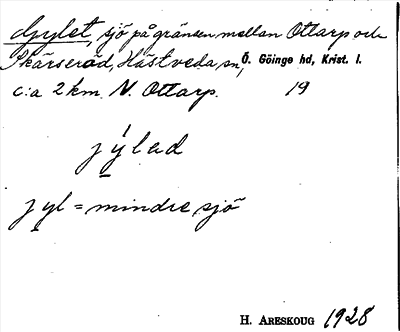 Gylet, sjö på gränsen mellan Ottarp och
Skärseröd, Hästveda sn, Ö. Göinge hd, Krist. l.
c:a 2 km N. Ottarp. 19
jýlad
jyl = mindre sjö
H. ARESKOUG 1928